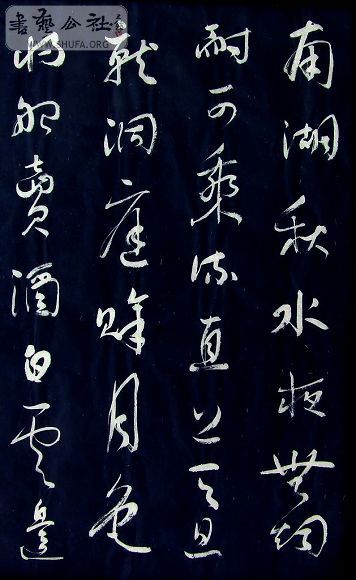 書藝公社
WWW.SHUFA.ORG
南湖秋水夜無烟
耐可乘流直上天且
就洞庭賒月色
將船賣酒白雲邊